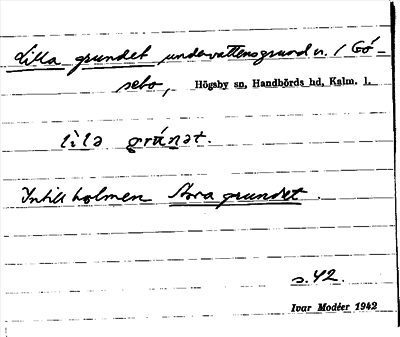 Lilla grundet undervattensgrund n. / Gö-
sebo, Högsby sn, Handbörds hd, Kalm. l.
lìlə grúnət.
Intill holmen Stora grundet.
s. 42.
Ivar Modéer 1942